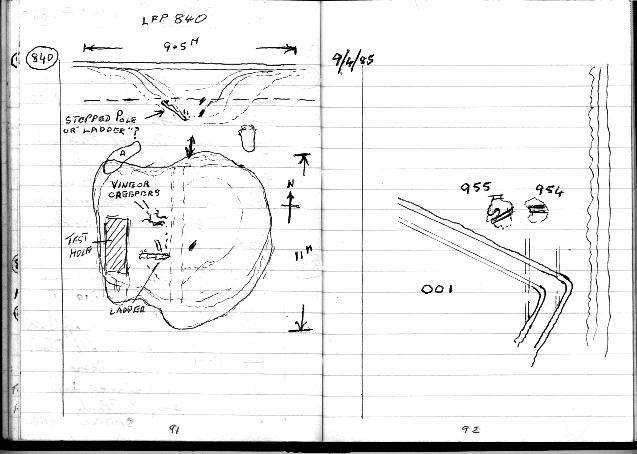 LFP 840
840
9.5 M
STEPPED POLE
OR "LADDER"?
A
VINE OR
CREEPERS
N
TEST
HOLE
11 M
LADDER
91
9/4/85
955
954
001
92